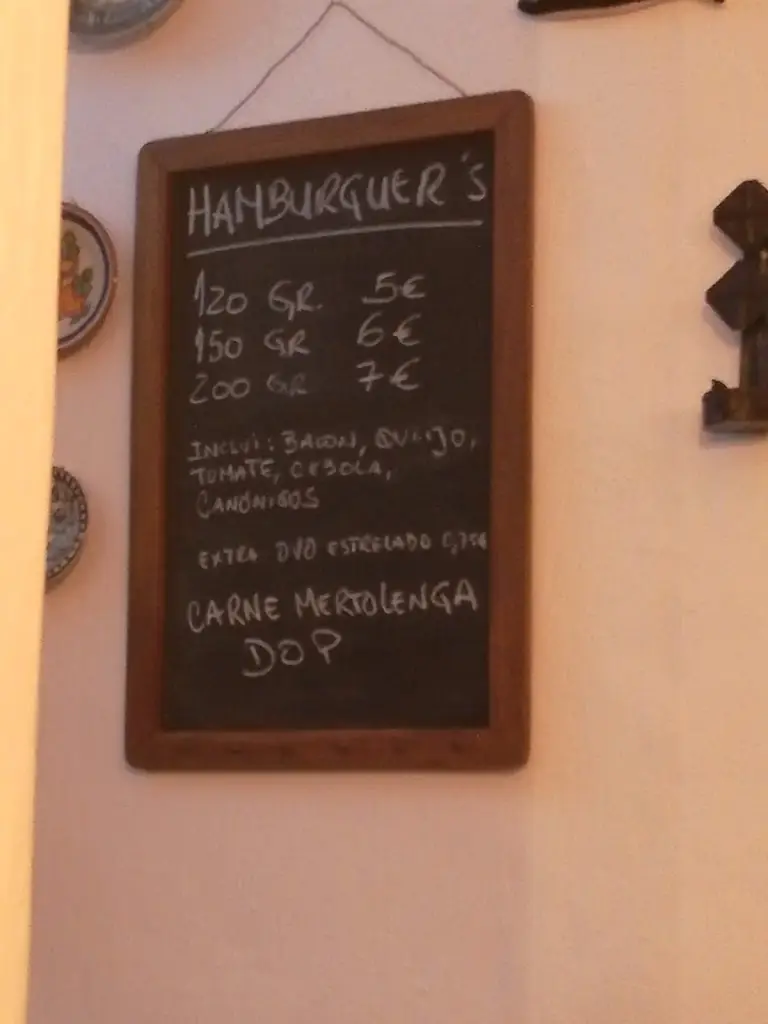 HAMBURGUER'S
120 GR. 5€
150 GR 6€
200 GR 7€
INCLUI: BACON, QUEIJO,
TOMATE, CEBOLA,
CANÓNIGOS
EXTRA OVO ESTRELADO 0,75€
CARNE MERTOLENGA
DOP